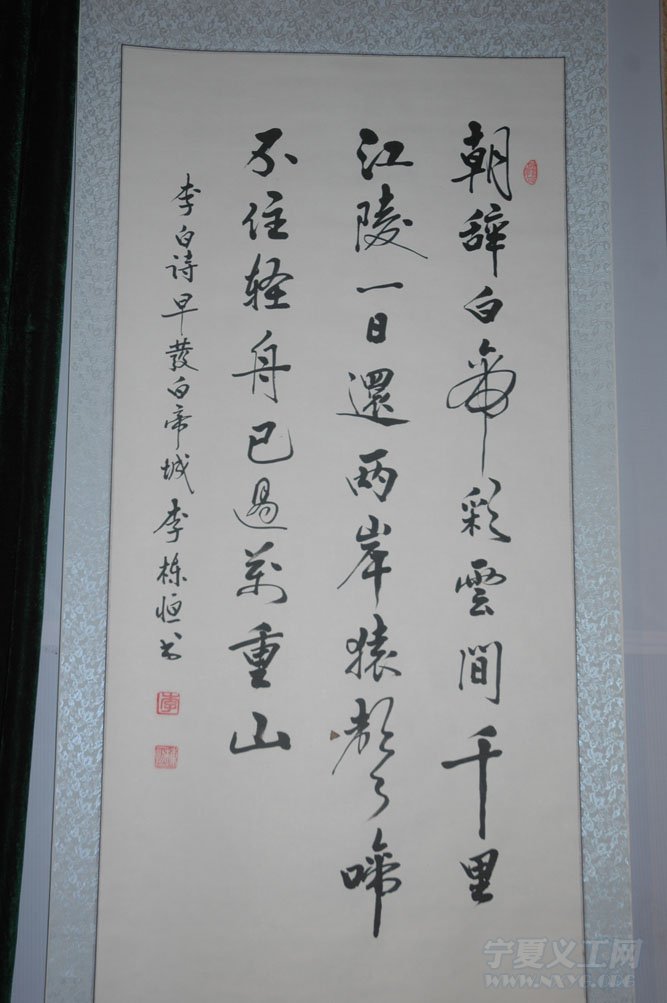 朝辞白帝彩雲間千里
江陵一日還两岸猿聲啼
不住轻舟已過萬重山
李白诗早發白帝城李栋恒书
宁夏义工网
WWW.NXYG.ORG